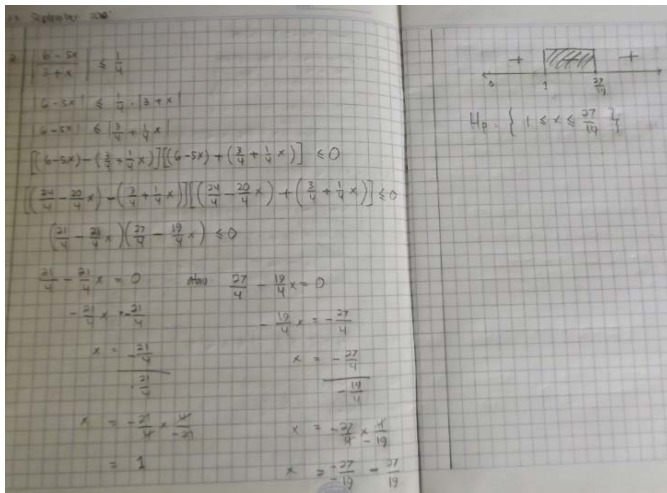 September
| 6 - 5x / 3 + x | ≤ 1/4
|6 - 5x| ≤ 1/4 · |3 + x|
|6 - 5x| ≤ |3/4 + 1/4 x|
[(6 - 5x) - (3/4 + 1/4 x)][(6 - 5x) + (3/4 + 1/4 x)] ≤ 0
[(24/4 - 20/4 x) - (3/4 + 1/4 x)][(24/4 - 20/4 x) + (3/4 + 1/4 x)] ≤ 0
(21/4 - 21/4 x)(27/4 - 19/4 x) ≤ 0
21/4 - 21/4 x = 0 atau 27/4 - 19/4 x = 0
- 21/4 x = -21/4 - 19/4 x = - 27/4
x = -21/4 / -21/4 x = - 27/4 / - 19/4
x = - 21/4 × 4/-21 x = - 27/4 × 4/-19
= 1 x = -27/-19 = 27/19
+ - +
0 1 27/19
Hp. { 1 ≤ x ≤ 27/19 }